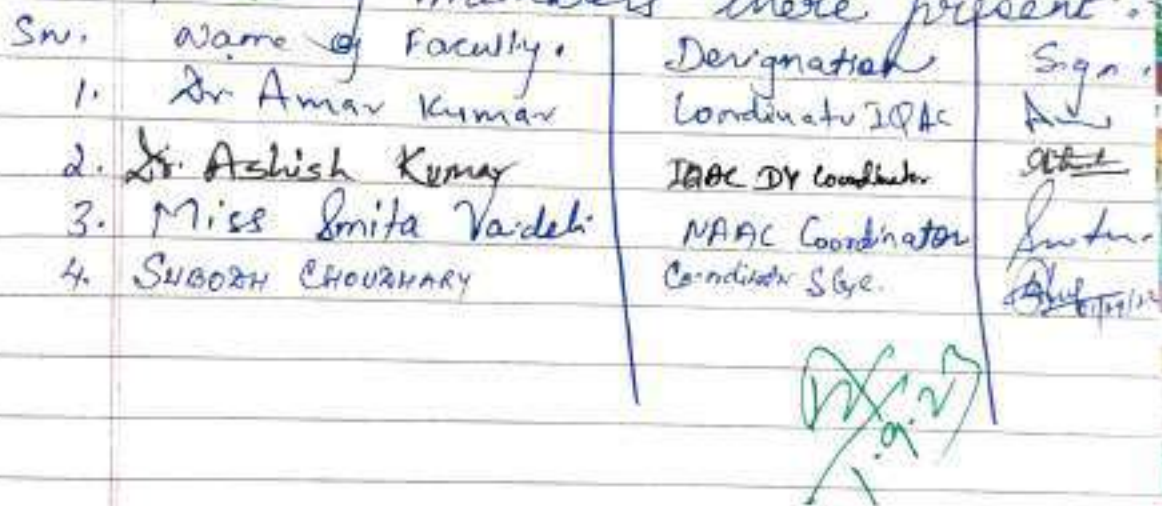 members were present.
Sn. Name of Faculty. Designation Sign.
1. Dr Amar Kumar Coordinator IQAC
2. Dr. Ashish Kumar IQAC DY Coordinator
3. Miss Smita Vaideli NAAC Coordinator
4. SUBODH CHOUDHARY Coordinator